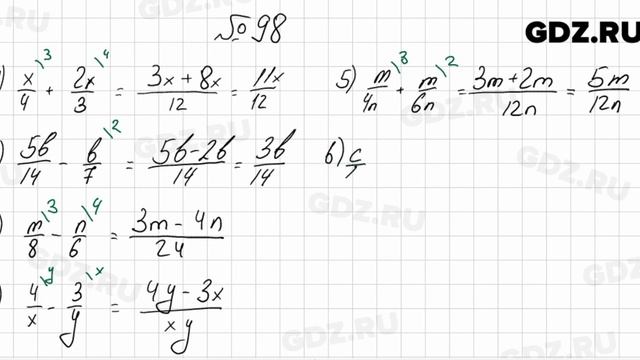 №98
GDZ.RU
) x/4 \3 + 2x/3 \4 = 3x + 8x/12 = 11x/12
) 5b/14 - b/7 \2 = 5b-2b/14 = 3b/14
) m/8 \3 - n/6 \4 = 3m - 4n/24
) 4/x \y - 3/y \x = 4y - 3x/xy
5) m/4n \3 + m/6n \2 = 3m+2m/12n = 5m/12n
6) c/
GDZ.RU
GDZ.RU
GDZ.RU
GDZ.RU
GDZ.RU
GDZ.RU